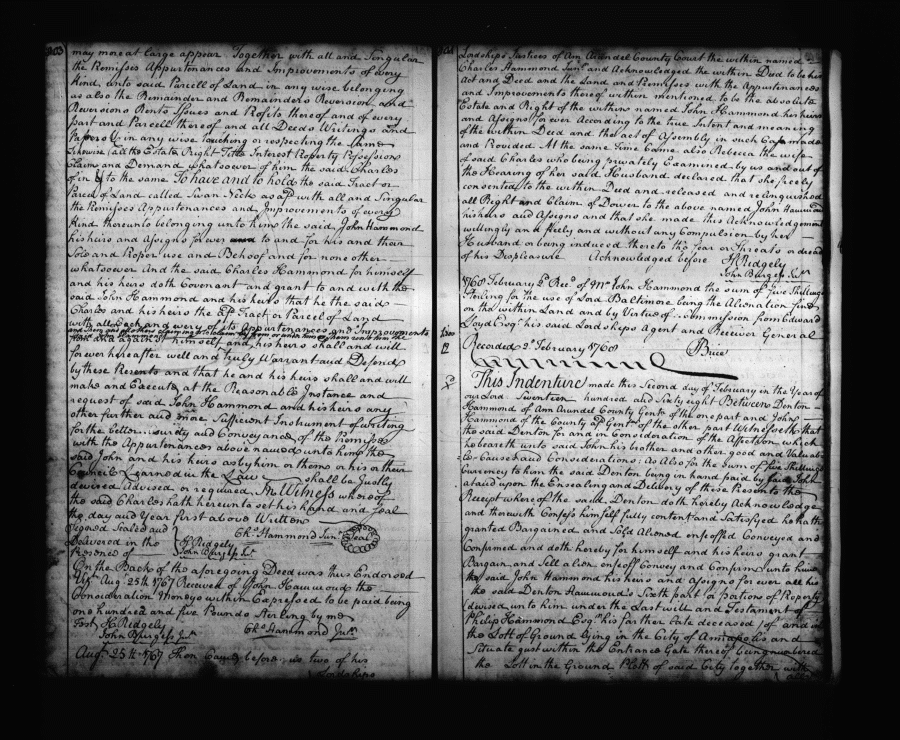 203
may more at large appear Together with all and Singular
the Remisses Appurtenances and Improvements of Every
Kind, unto said Parcell of Land in any wise belonging
as also the Remainder and Remainders Reversion and
Reversions Rents Issues and Profits thereof and of every
part and Parcell thereof and all Deeds Writings and
Papers &c in any wise touching or respecting the Same
Likewise all the Estate Right Title Interest Property Possession
Claim and Demand whatsoever of him the said Charles
of in & to the same To have and to hold the said Tract or
Parcel of Land called Swan Neck as afd with all and Singular
the Remisses Appurtenances and Improvements of every
Kind thereunto belonging unto him the said John Hammond
his heirs and Assigns for ever to and for his and their
Sole and Proper use and Behoof and for none other
whatsoever And the said Charles Hammond for himself
and his heirs doth Covenant and grant to and with the
said John Hammond and his heirs that he the said
Charles and his heirs the afd Tract or Parcel of Land
with all Each and every of its Appurtenances and Improvements
from and against himself and his heirs shall and will
for ever hereafter well and truly Warrant and Defend
by these Presents and that he and his heirs shall and will
make and Execute at the Reasonable Instance and
request of said John Hammond and his heirs any
other further and more Sufficient Instrument of writing
for the better surity and Conveyance of the premises
with the Appurtenances above named unto him the
said John and his heirs as by him or them or his or their
Councile Learned in the Law shall be Justly
devised Advised or required In Witness whereof
the said Charles hath hereunto set his hand and Seal
the day and Year first above Written
Signed Sealed and
Delivered in the
Presence of
H Ridgely
John Burgess Junr
Chs Hammond Junr
Seal
On the Back of the aforegoing Deed was thus Endorsed
Viz Augt 25th 1767 Received of John Hammond the
Consideration Money within Expressed to be paid being
one hundred and five Pounds Sterling by me
Test H Ridgely
John Burgess Junr
Chs Hammond Junr
Augt 25th 1767 Then Came before us two of his
Lordships
204
Lordships Justices of Ann Arundel County Court the within named
Charles Hammond Junr and Acknowledged the within Deed to be his
Act and Deed and the Land and Remisses with the Appurtenances
and Improvements thereof within mentioned to be the absolute
Estate and Right of the within named John Hammond his heirs
and Assigns for ever According to the true Intent and meaning
of the within Deed and the act of Assembly in such Case made
and Provided. At the same Time Came also Rebecca the wife
of said Charles who being privately Examined by us and out of
the Hearing of her said Husband declared that she freely
consented to the within Deed and released and relinquished
all Right and Claim of Dower to the above named John Hammond
his heirs and Assigns and that she made this Acknowledgement
willingly and freely and without any Compulsion by her
Husband or being induced thereto thro fear or Threats or dread
of his Displeasure Acknowledged before H Ridgely
John Burgess Junr
1768 February 2d Recd of Mr John Hammond the sum of five Shillings
Sterling for the use of Lord Baltimore being the Alienation fine
on the within Land and by Virtue of Commission from Edward
Lloyd Esqr his said Lordships Agent and Receiver General
Recorded 2d February 1768 Brice
12
This Indenture made this Second day of February in the Year of
our Lord Seventeen hundred and Sixty eight Between Denton
Hammond of Ann Arundel County Gent of the one part and John
Hammond of the County afd Gent of the other part Witnesseth that
the said Denton for and in Consideration of the Affection which
he beareth unto said John his brother and other good and Valuable
Causes and Considerations: As Also for the Sum of five Shillings
Currency to him the said Denton being in hand paid by said John
at and upon the Ensealing and Delivery of these Presents the
Receipt whereof the said Denton doth hereby Acknowledge
and therewith Confess himself fully content and Satisfyed he hath
granted Bargained and Sold Aliened enfeoffed Conveyed and
Confirmed and doth hereby for himself and his heirs grant
Bargain and Sell alien enfeoff Convey and Confirm unto him
the said John Hammond his heirs and Assigns for ever all his
the said Denton Hammond's Sixth part or portion of Property
devised unto him under the Last will and Testament of
Philip Hammond Esqr his farther Late deceased of and in
the Lott of Ground lying in the City of Annapolis and
Situate just within the Entrance Gate thereof being numbered
the Lott in the Ground Plott of said City together with
all